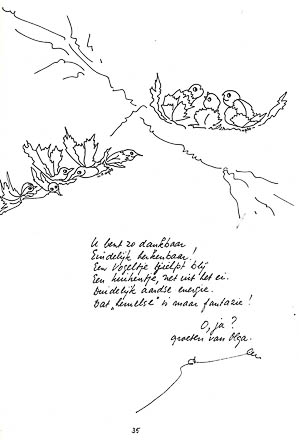 U bent zo dankbaar
Eindelijk herkenbaar!
Een vogeltje tjielpt blij
Een kuikentje, net uit het ei.
Duidelijk aardse energie.
Dat "hemelse" is maar fantasie!
O, ja?
groeten van Olga.
35